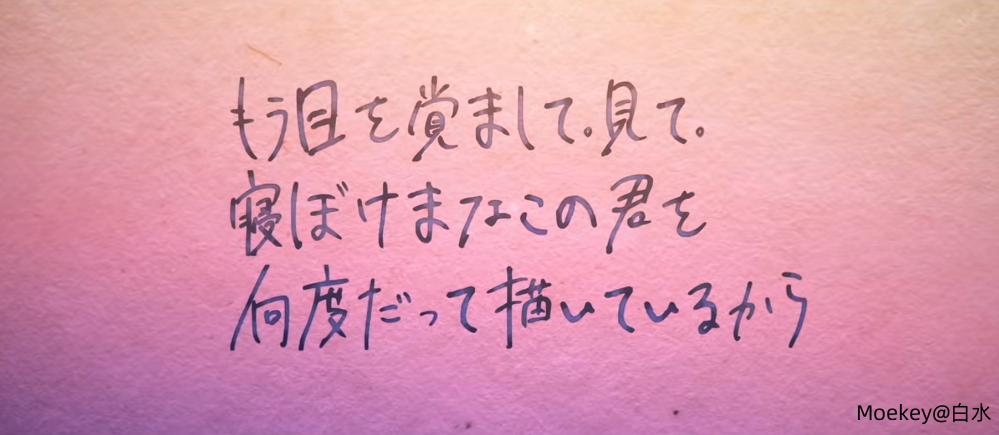 もう目を覚まして。見て。
寝ぼけまなこの君を
何度だって描いているから
Moekey@白水